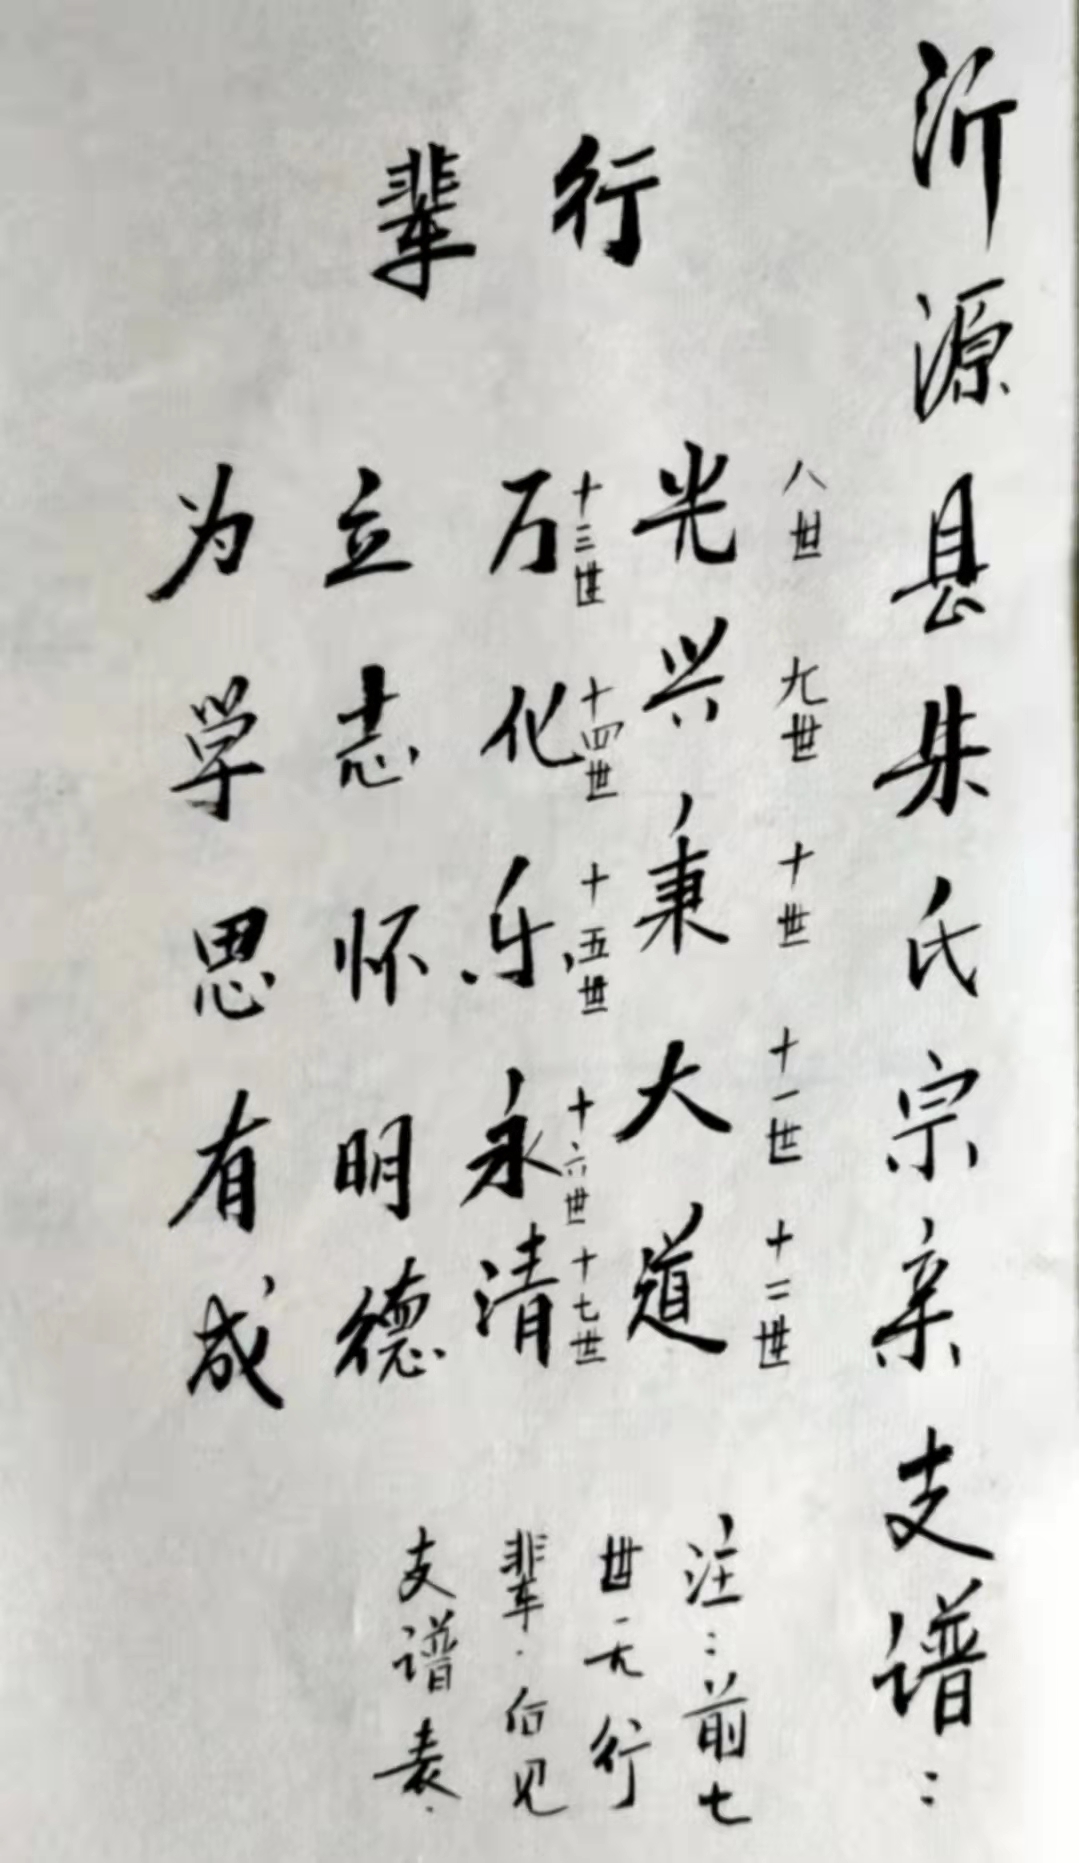 沂源县朱氏宗亲支谱：
行辈
八世 九世 十世 十一世 十二世
光兴秉大道
十三世 十四世 十五世 十六世 十七世
万化乐永清
立志怀明德
为学思有成
注：前七
世一无行
辈.后见
支谱表.